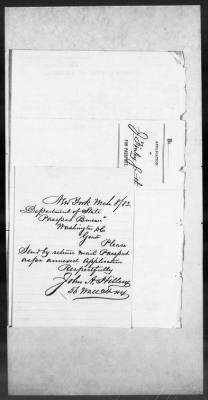 APPLICATION
FOR PASSPORT.
New York Mch 8/82
Department of State
"Passport Bureau"
Washington DC
Gents
Please
Send by return mail Passport
as per annexed Application
Respectfully
John A. Hillery
56 Wall St NY